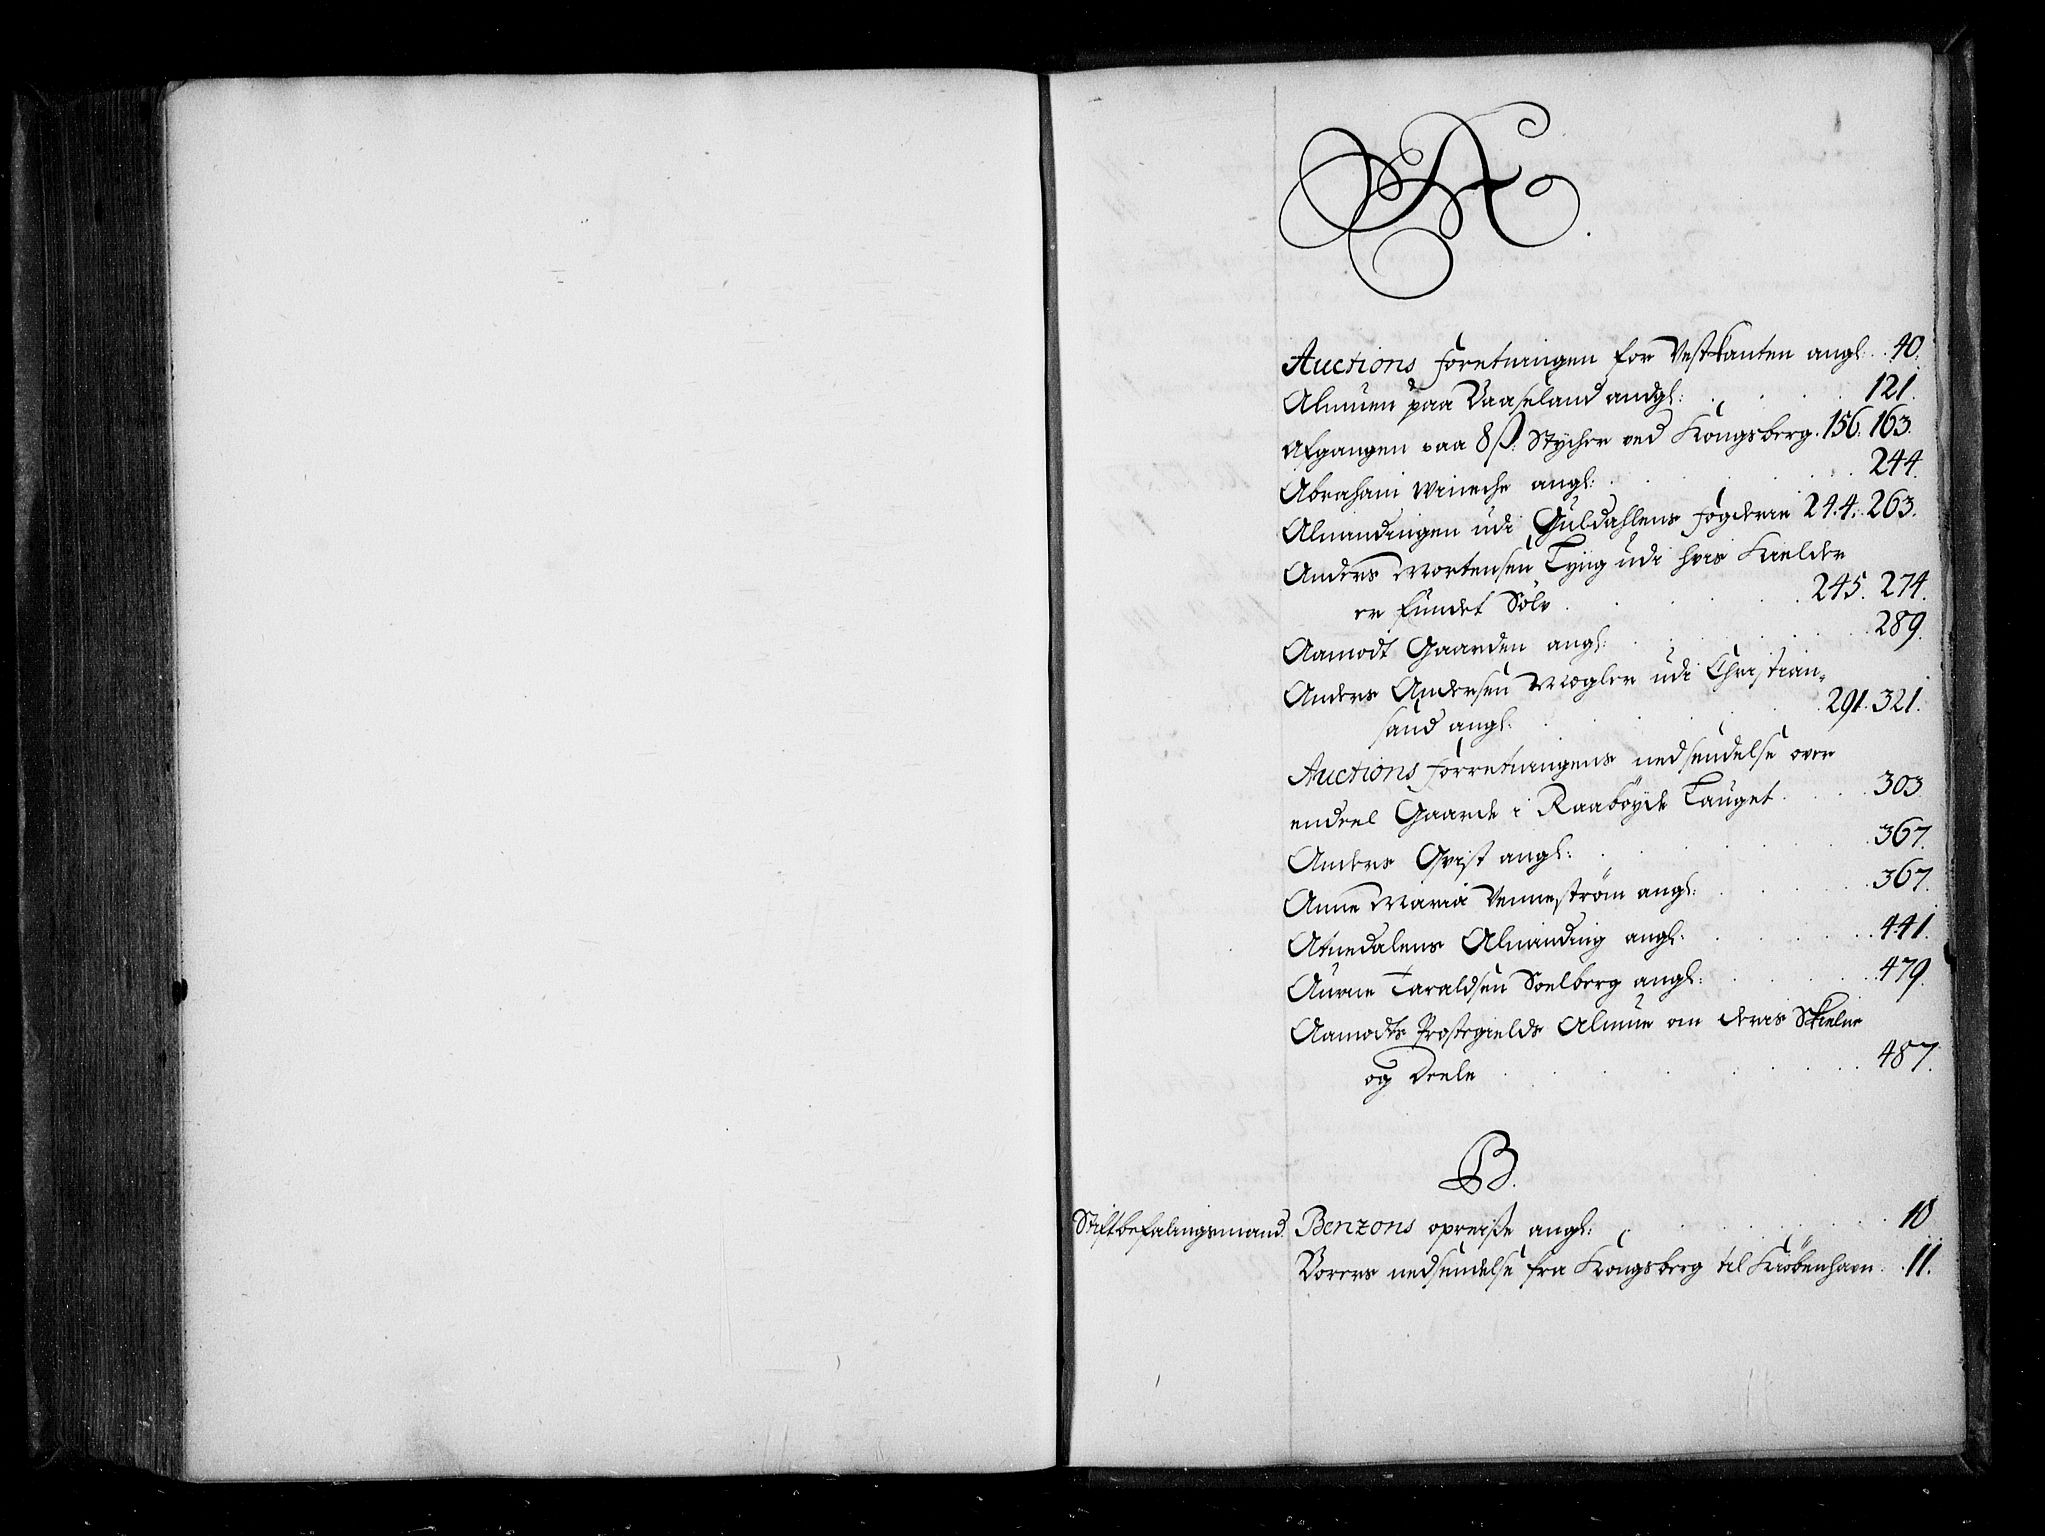 A.
Auctions forretningen for Vestkanten angl: . 40.
Almuen paa Vaaseland andgl: . . . . 121.
Afgangen paa 8 ß: Stycher ved Kongsberg. 156. 163.
Abraham Wineche angl: . . . . . 244.
Almindingen udi Guldahlens fogderie 244. 263.
Anders Mortensen Tyng udi hvis Kielder
er fundet Sölv . . . . . 245. 274.
Aamodt Gaarden angl: . . . . . 289.
Anders Andersen Mogler udi Christian-
sand angl: . . . . . 291. 321.
Auctions forretningens nedsendelse over
endeel Gaarde i Raaböyde Lauget . . . 303.
Anders Qvist angl: . . . . . 367.
Anne Maria Vennestrøm angl: . . . . 367.
Atnedalens Alminding angl: . . . . 441.
Aurne Taraldsen Soelberg angl: . . . 479.
Aamodts Prostegields Almue om deris Skielne
og Deele . . . . . . 487.
B.
Stiftbefalingsmand Benzons opreiße angl: . . . . . 10
Borers nedsendelse fra Kongsberg til Kiöbenhavn . 11.